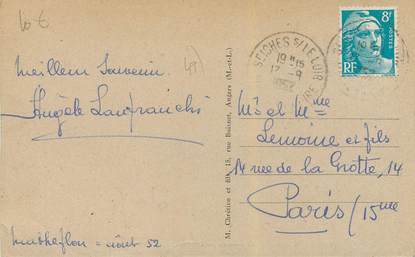 10 €
49
Meilleur Souvenir
Angèle Lanfranchi
Matheflon = août 52
M. Chrétien et fils, 15, rue Buisnet, Angers (M.-et-L.)
SEICHES S/ LE LOIR
19 H 15
17 - 9
1952
8F
POSTES
RF
Mr et Mme
Lemoine et fils
14 rue de la Grotte, 14
Paris / 15me